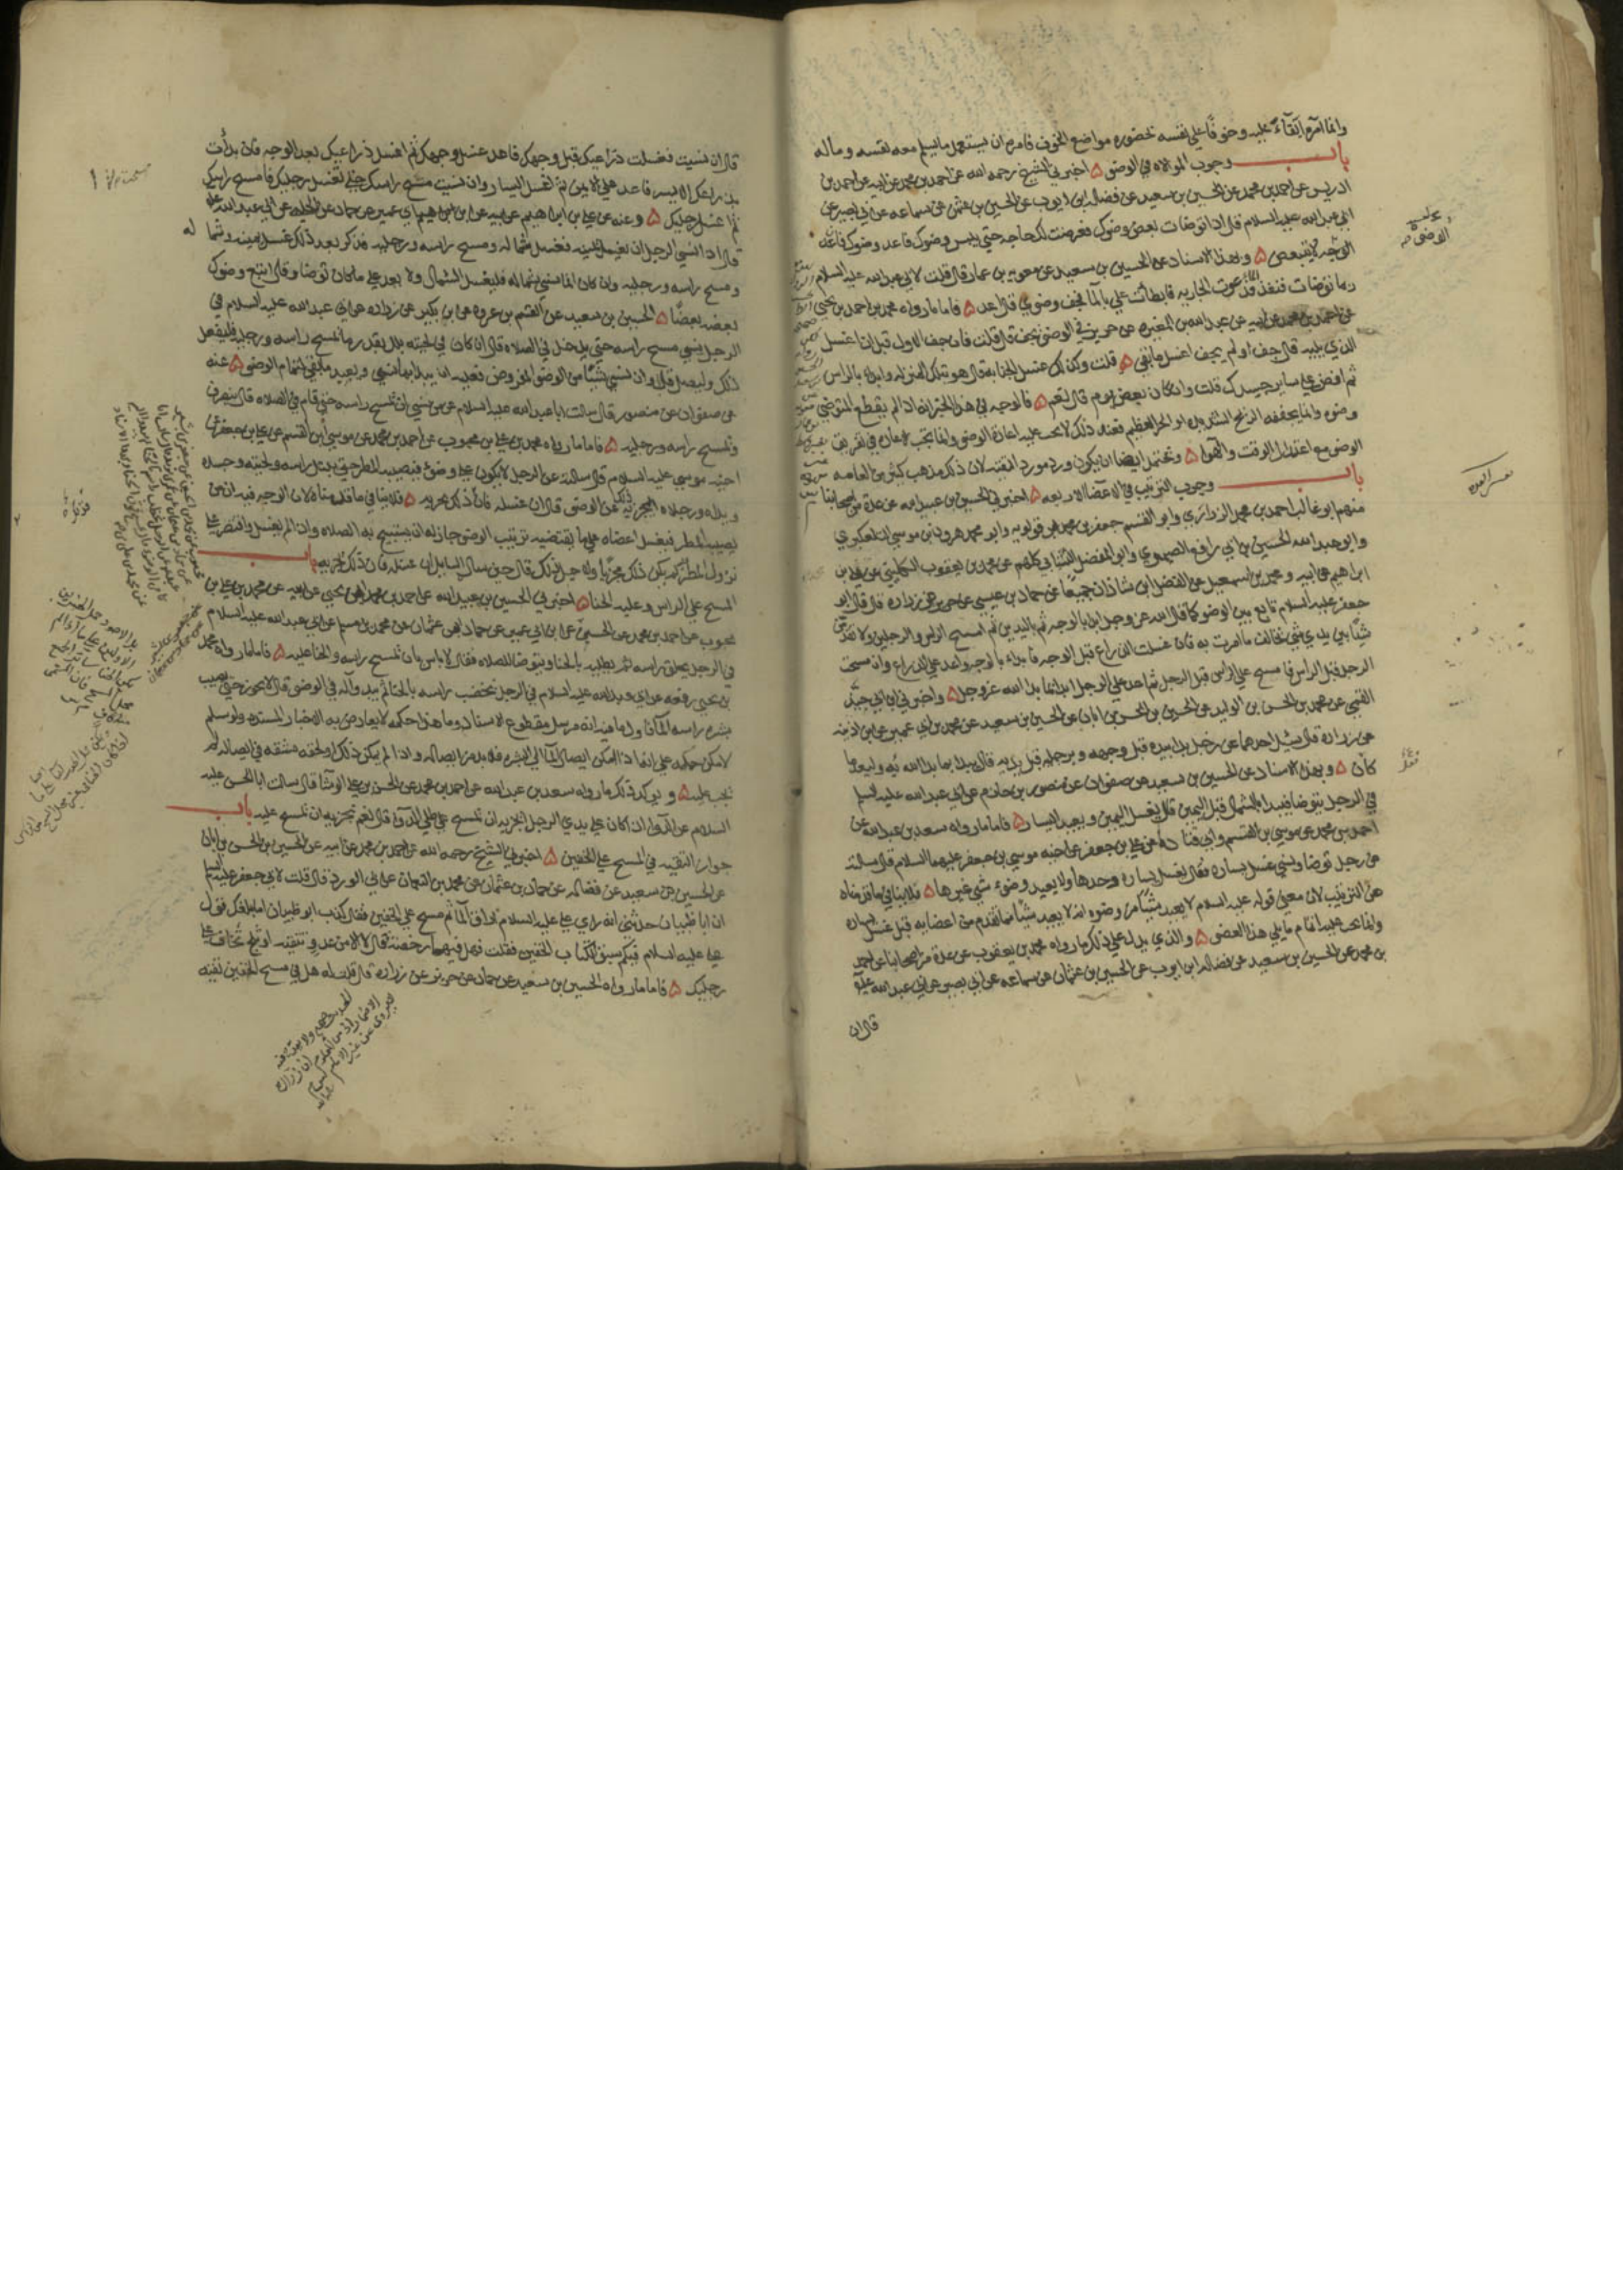 وانما امره ابقاء عليه وخوفا على نفسه بحضوره مواضع الخوف فامره ان يستعمل ما يسلم معه نفسه وماله
باب وجوب الموالاه في الوضوء ۵ اخبرني الشيخ رحمه الله عن احمد بن محمد عن ابيه عن احمد بن
ادريس عن احمد بن محمد عن الحسين بن سعيد عن فضاله بن ايوب عن الحسين بن عثمن عن سماعه عن ابي بصير عن
ابي عبد الله عليه السلام قال اذا توضات بعض وضوك فعرضت لك حاجه حتى يبس وضوك فاعد وضوك فان
الوضوء لا يتبعض ۵ وبهذا الاسناد عن الحسين بن سعيد عن معويه بن عمار قال قلت لابي عبد الله عليه السلام
ربما توضات فنفد الماء فدعوت الجاريه فابطأت علي بالماء فيجف وضوي قال اعد ۵ فاما ما رواه محمد بن احمد بن يحيى
عن احمد بن محمد عن ابيه عن عبد الله بن المغيره عن حريز في الوضوء يجف قال قلت فان جف الاول قبل ان اغسل
الذي يليه قال جف او لم يجف اغسل ما بقي ۵ قلت وكذلك غسل الجنابه قال هو بتلك المنزله وابدا بالراس
ثم افض على ساير جسدك قلت وان كان بعض يوم قال نعم ۵ فالوجه في هذا الخبر انه اذا لم يقطع المتوضي
وضوه وانما يجففه الريح الشديده او الحر العظيم فعند ذلك لا يجب عليه اعاده الوضوء وانما يجب الاعاده في تفريق
الوضوء مع اعتدال الوقت والهوا ۵ ويحتمل ايضا ان يكون ورد مورد التقيه لان ذلك مذهب كثير من العامه
باب وجوب الترتيب في الاعضاء الاربعه ۵ اخبرني الحسين بن عبيد الله عن عدة من اصحابنا
منهم ابو غالب احمد بن محمد الزراري وابو القسم جعفر بن محمد بن قولويه وابو محمد هرون بن موسى التلعكبري
وابو عبد الله الحسين بن ابي رافع الصيمري وابو المفضل الشيباني كلهم عن محمد بن يعقوب الكليني عن علي بن
ابراهيم عن ابيه ومحمد بن اسمعيل عن الفضل بن شاذان جميعا عن حماد بن عيسى عن حريز عن زراره قال قال ابو
جعفر عليه السلام تابع بين الوضوء كما قال الله عز وجل ابدا بالوجه ثم باليدين ثم امسح الراس والرجلين ولا تقدمن
شيئا بين يدي شيء تخالف ما امرت به فان غسلت الذراع قبل الوجه فابدا بالوجه واعد على الذراع وان مسحت
الرجل قبل الراس فامسح على الراس قبل الرجل ثم اعد على الرجل ابدا بما بدا الله عز وجل ۵ واخبرني ابن ابي جيد
القمي عن محمد بن الحسن بن الوليد عن الحسين بن الحسن بن ابان عن الحسين بن سعيد عن محمد بن ابي عمير عن ابن اذينه
عن زراره قال سئل احدهما عن رجل بدا بيده قبل وجهه وبرجليه قبل يديه قال يبدا بما بدا الله به وليعد ما
كان ۵ وبهذا الاسناد عن الحسين بن سعيد عن صفوان عن منصور بن حازم عن ابي عبد الله عليه السلام
في الرجل يتوضا فيبدا بالشمال قبل اليمين قال يغسل اليمين ويعيد اليسار ۵ فاما ما رواه سعد بن عبد الله عن
احمد بن محمد عن موسى بن القسم وابي قتاده عن علي بن جعفر عن اخيه موسى بن جعفر عليهما السلام قال سالته
عن رجل توضا ونسي غسل يساره فقال يغسل يساره وحدها ولا يعيد وضوء شيء غيرها ۵ فلا ينافي ما قدمناه
من الترتيب لان معنى قوله عليه السلام لا يعيد شيئا من وضوه انه لا يعيد شيئا مما تقدم من اعضايه قبل غسل يساره
وانما يجب عليه اتمام ما يلي هذا العضو ۵ والذي يدل على ذلك ما رواه محمد بن يعقوب عن عدة من اصحابنا عن احمد
بن محمد عن الحسين بن سعيد عن فضاله بن ايوب عن الحسين بن عثمان عن سماعه عن ابي بصير عن ابي عبد الله عليه
قال ان
قال ان نسيت فغسلت ذراعيك قبل وجهك فاعد غسل وجهك ثم اغسل ذراعيك بعد الوجه فان بدأت
بذراعك الايسر فاعد على الايمن ثم اغسل اليسار وان نسيت مسح راسك حتى تغسل رجليك فامسح راسك
ثم اغسل رجليك ۵ وعنه عن علي بن ابراهيم عن ابيه عن ابن ابي عمير عن حماد عن الحلبي عن ابي عبد الله عليه
قال اذا نسي الرجل ان يغسل يمينه فغسل شماله ومسح راسه ورجليه فذكر بعد ذلك غسل يمينه وشماله
ومسح راسه ورجليه وان كان انما نسي شماله فليغسل الشمال ولا يعيد على ما كان توضا وقال اتبع وضوك
بعضه بعضا ۵ الحسين بن سعيد عن القسم بن عروه عن ابن بكير عن زراره عن ابي عبد الله عليه السلام في
الرجل ينسى مسح راسه حتى يدخل في الصلاه قال ان كان في لحيته بلل بقدر ما يمسح راسه ورجليه فليفعل
ذلك وليصل قال وان نسي شيئا من الوضوء المفروض فعليه ان يبدا بما نسي ويعيد ما بقي لتمام الوضوء ۵ عنه
عن صفوان عن منصور قال سالت ابا عبد الله عليه السلام عن من نسي ان يمسح راسه حتى قام في الصلاه قال ينصرف
ويمسح راسه ورجليه ۵ فاما ما رواه محمد بن علي بن محبوب عن احمد بن محمد عن موسى بن القسم عن علي بن جعفر عن
اخيه موسى عليه السلام قال سالته عن الرجل لا يكون على وضوء فيصيبه المطر حتى يبتل راسه ولحيته وجسده
ويداه ورجلاه ايجزيه ذلك من الوضوء قال ان غسله فان ذلك يجزيه ۵ فلا ينافي ما قدمناه لان الوجه فيه ان من
يصيبه المطر فيغسل اعضاه على ما يقتضيه ترتيب الوضوء جاز له ان يستبيح به الصلاه وان لم يغسل واقتصر على
نزول المطر لم يكن ذلك مجزيا ولاجل ذلك قال حين سال السايل ان غسله فان ذلك يجزيه باب
المسح على الراس وعليه الحنا ۵ اخبرني الحسين بن عبيد الله عن احمد بن محمد بن يحيى عن ابيه عن محمد بن علي بن
محبوب عن احمد بن محمد عن الحسين عن ابن ابي عمير عن حماد بن عثمان عن محمد بن مسلم عن ابي عبد الله عليه السلام
في الرجل يحلق راسه ثم يطليه بالحنا ويتوضا للصلاه فقال لا باس بان يمسح راسه والحنا عليه ۵ فاما ما رواه محمد
بن يحيى رفعه عن ابي عبد الله عليه السلام في الرجل يخضب راسه بالحنا ثم يبدو له في الوضوء قال لا يجوز حتى يصيب
بشره راسه الماء فاول ما فيه انه مرسل مقطوع الاسناد وما هذا حكمه لا يعارض به الاخبار المسنده ولو سلم
لامكن حمله على انه اذا امكن ايصال الماء الى البشره فلا بد من ايصاله واذا لم يمكن ذلك او لحقه مشقه في ايصاله لم
يجب عليه ۵ ويوكد ذلك ما رواه سعد بن عبد الله عن احمد بن محمد عن الحسن بن علي الوشا قال سالت ابا الحسن عليه
السلام عن الدوا اذا كان على يدي الرجل ايجزيه ان يمسح على طلي الدوا قال نعم يجزيه ان يمسح عليه باب
جواز التقيه في المسح على الخفين ۵ اخبرني الشيخ رحمه الله عن احمد بن محمد عن ابيه عن الحسين بن الحسن بن ابان
عن الحسين بن سعيد عن فضاله عن حماد بن عثمان عن محمد بن النعمان عن ابي الورد قال قلت لابي جعفر عليه السلام
ان ابا ظبيان حدثني انه راى علي عليه السلام اراق الماء ثم مسح على الخفين فقال كذب ابو ظبيان اما بلغك قول
علي عليه السلام فيكم سبق الكتاب الخفين فقلت فهل فيهما رخصة فقال لا الا من عدو تتقيه او ثلج تخاف على
رجليك ۵ فاما ما رواه الحسين بن سعيد عن حماد عن حريز عن زراره قال قلت له هل في مسح الخفين تقيه